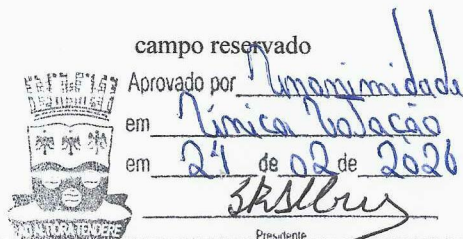 campo reservado
Aprovado por Unanimidade
em Única Votação
em 24 de 02 de 2026
Presidente
TENDERE